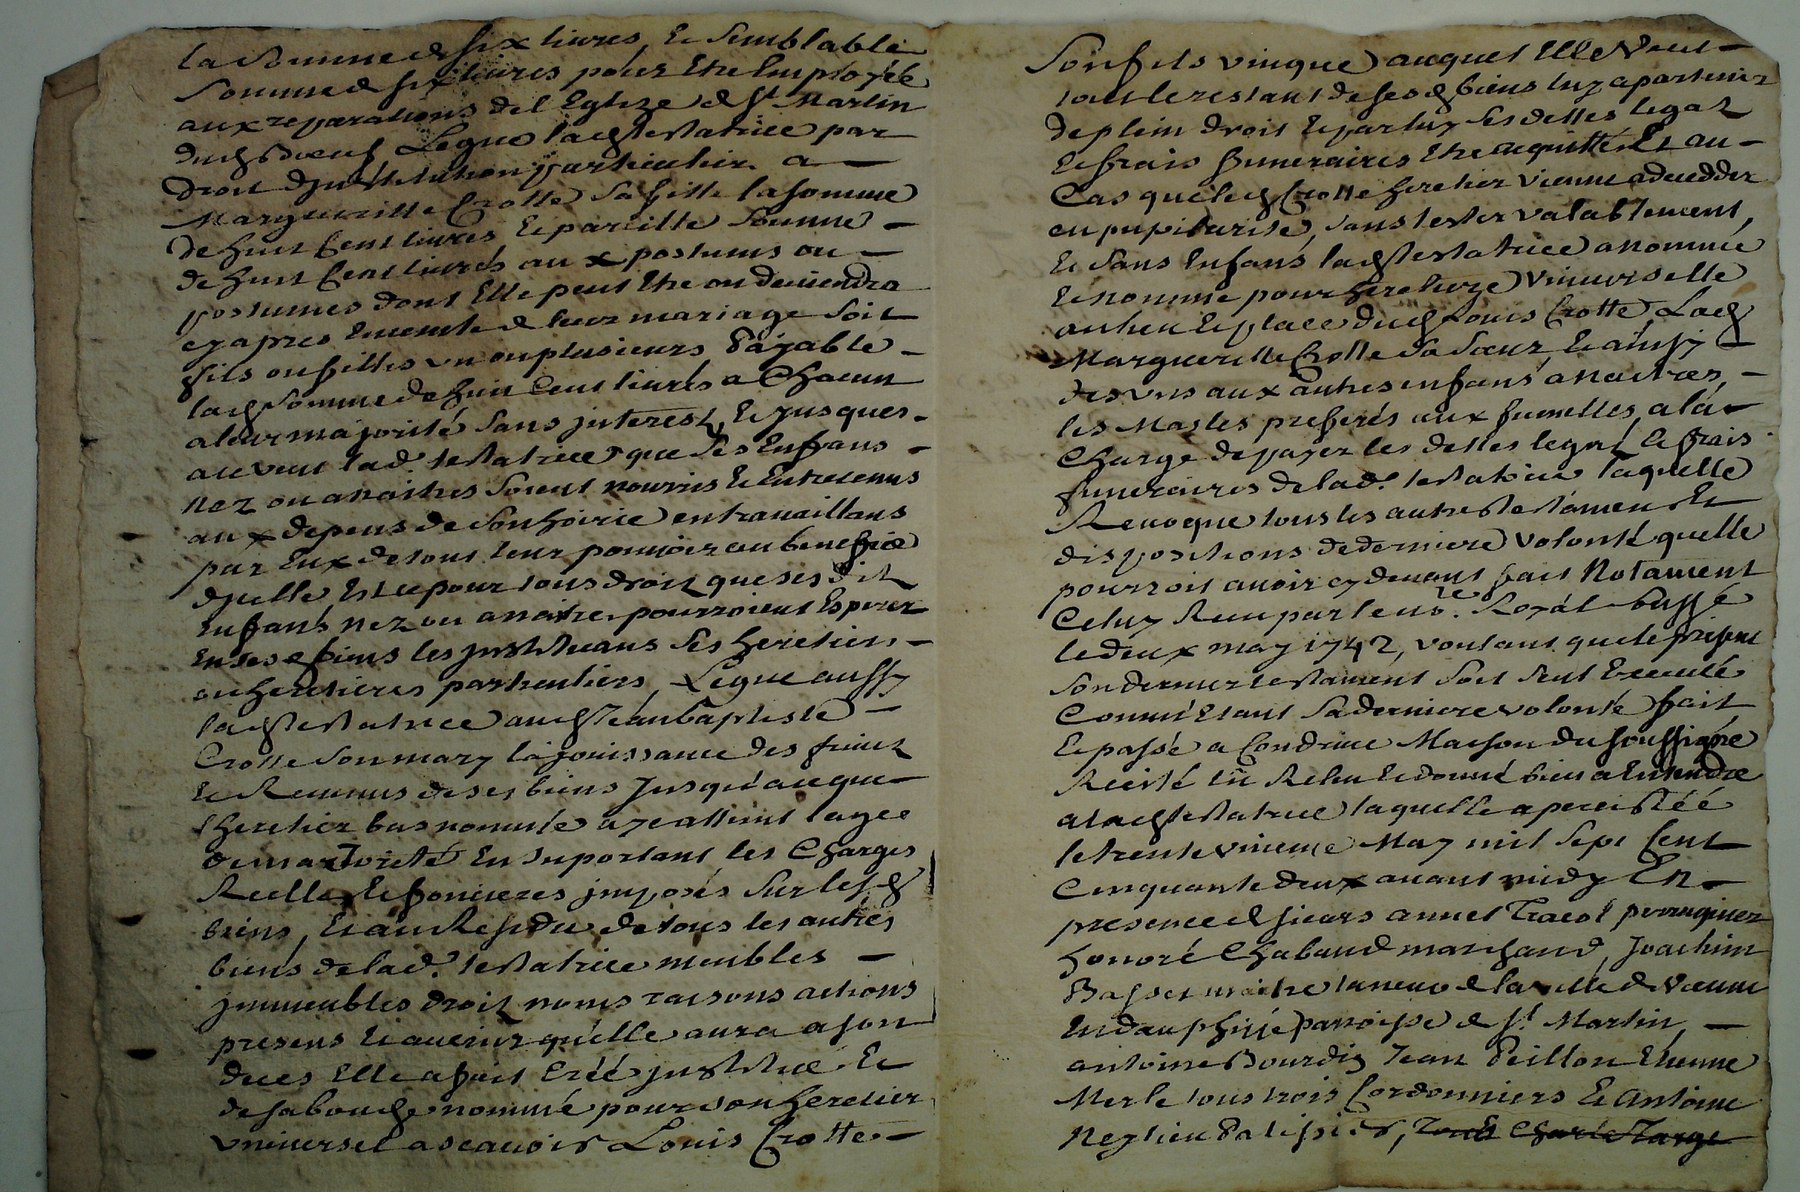 la Somme de six livres, Et Semblable
Somme de six livres pour Etre Employée
aux reparations del Eglize de St. Martin
dud. Boeuf, Legue lad. testatrice par
droit djnstitution particulier a
Margueritte Crotte Sa fille la somme
de huit Cent livres Et pareille Somme
de huit Cent livres aux postums ou
postumes dont Elle peut Etre ou deviendra
cy apres Enceinte de leur mariage Soit
fils ou filles un ou plusieurs payable
lad. Somme de huit Cent livres a Chacun
a leur majorité Sans jnterest, Et jusques
a ce veut lad. testatrice que Ses Enfans
nez ou a naitres Soient nourris Et Entretenus
aux depens de Son hoirie en travaillans
par Eux de tout leur pouvoir au benefice
dycelle Et ce pour tous droit que ses dit
Enfans nez ou a naitre pourroient Esperer
En ses d. biens les jnstituans Ses heretiers
ou heretieres particuliers, Legue aussy
lad. testatrice aud. Jean baptiste
Crotte Son mary la jouissance des fruits
Et Revenus de ses biens Jusqu'a ce que
lheretier bas nommé aye attient lage
de marjorité En Suportant les Charges
Reelles Et foncieres jmposés Sur lesd.
biens, Et au Residu de tous les autres
biens de lad. testatrice meubles
jmmeubles droit noms raisons actions
presens Et avenir qu'elle aura a son
deces Elle a fait Créé jnstitué Et
de sa bouche nommé pour son heretier
universel a scavoir Louis Crotte
Son fils unique auquel Elle Veut
tout le restant de ses d. biens luy apartenir
de plein droit Et par luy Ses dettes legat
Et frais funeraires Etre aquitté Et au
Cas que led. Crotte heretier Vienne a decedder
en pupilarité, Sans tester valablement,
Et Sans Enfans, lad. testatrice a nommé
Et nomme pour heretiere Universelle
au lieu Et place dud. Louis Crotte Lad.
Margueritte Crotte Sa Sœur, Et ainsy
des uns aux autres enfans a naitres,
les Masles preferés aux fumelles, a la
Charge de payer les dettes legat Et frais
funeraires de lad. testatrice laquelle
Revoque tous les autres testament Et
dispositions de derniere volonté quelle
pourroit avoir cy devant fait Notament
Celuy Reçu par le nore. Royal
le deux may 1742, voulant que le present
Son dernier testament Soit Seul Executé
Comme Etant Sa derniere volonté fait
Et passé a Condrieu Maison du soussigné
Recité lû Relu Et donné bien a Entendre
a lad. testatrice laquelle a perçistéé
le trente unieme May mil Sept Cent
Cinquante deux avant midy En
presence de sieurs annet Tracol perruquier
honoré Chabaud marchand, Joachim
Basset maitre taneur de la ville de Vienne
En dauphiné parroisse de St. Martin,
antoine Bourdin Jean Peillon Etienne
Merle tous trois Cordonniers Et Antoine
Neylieu Patissier,